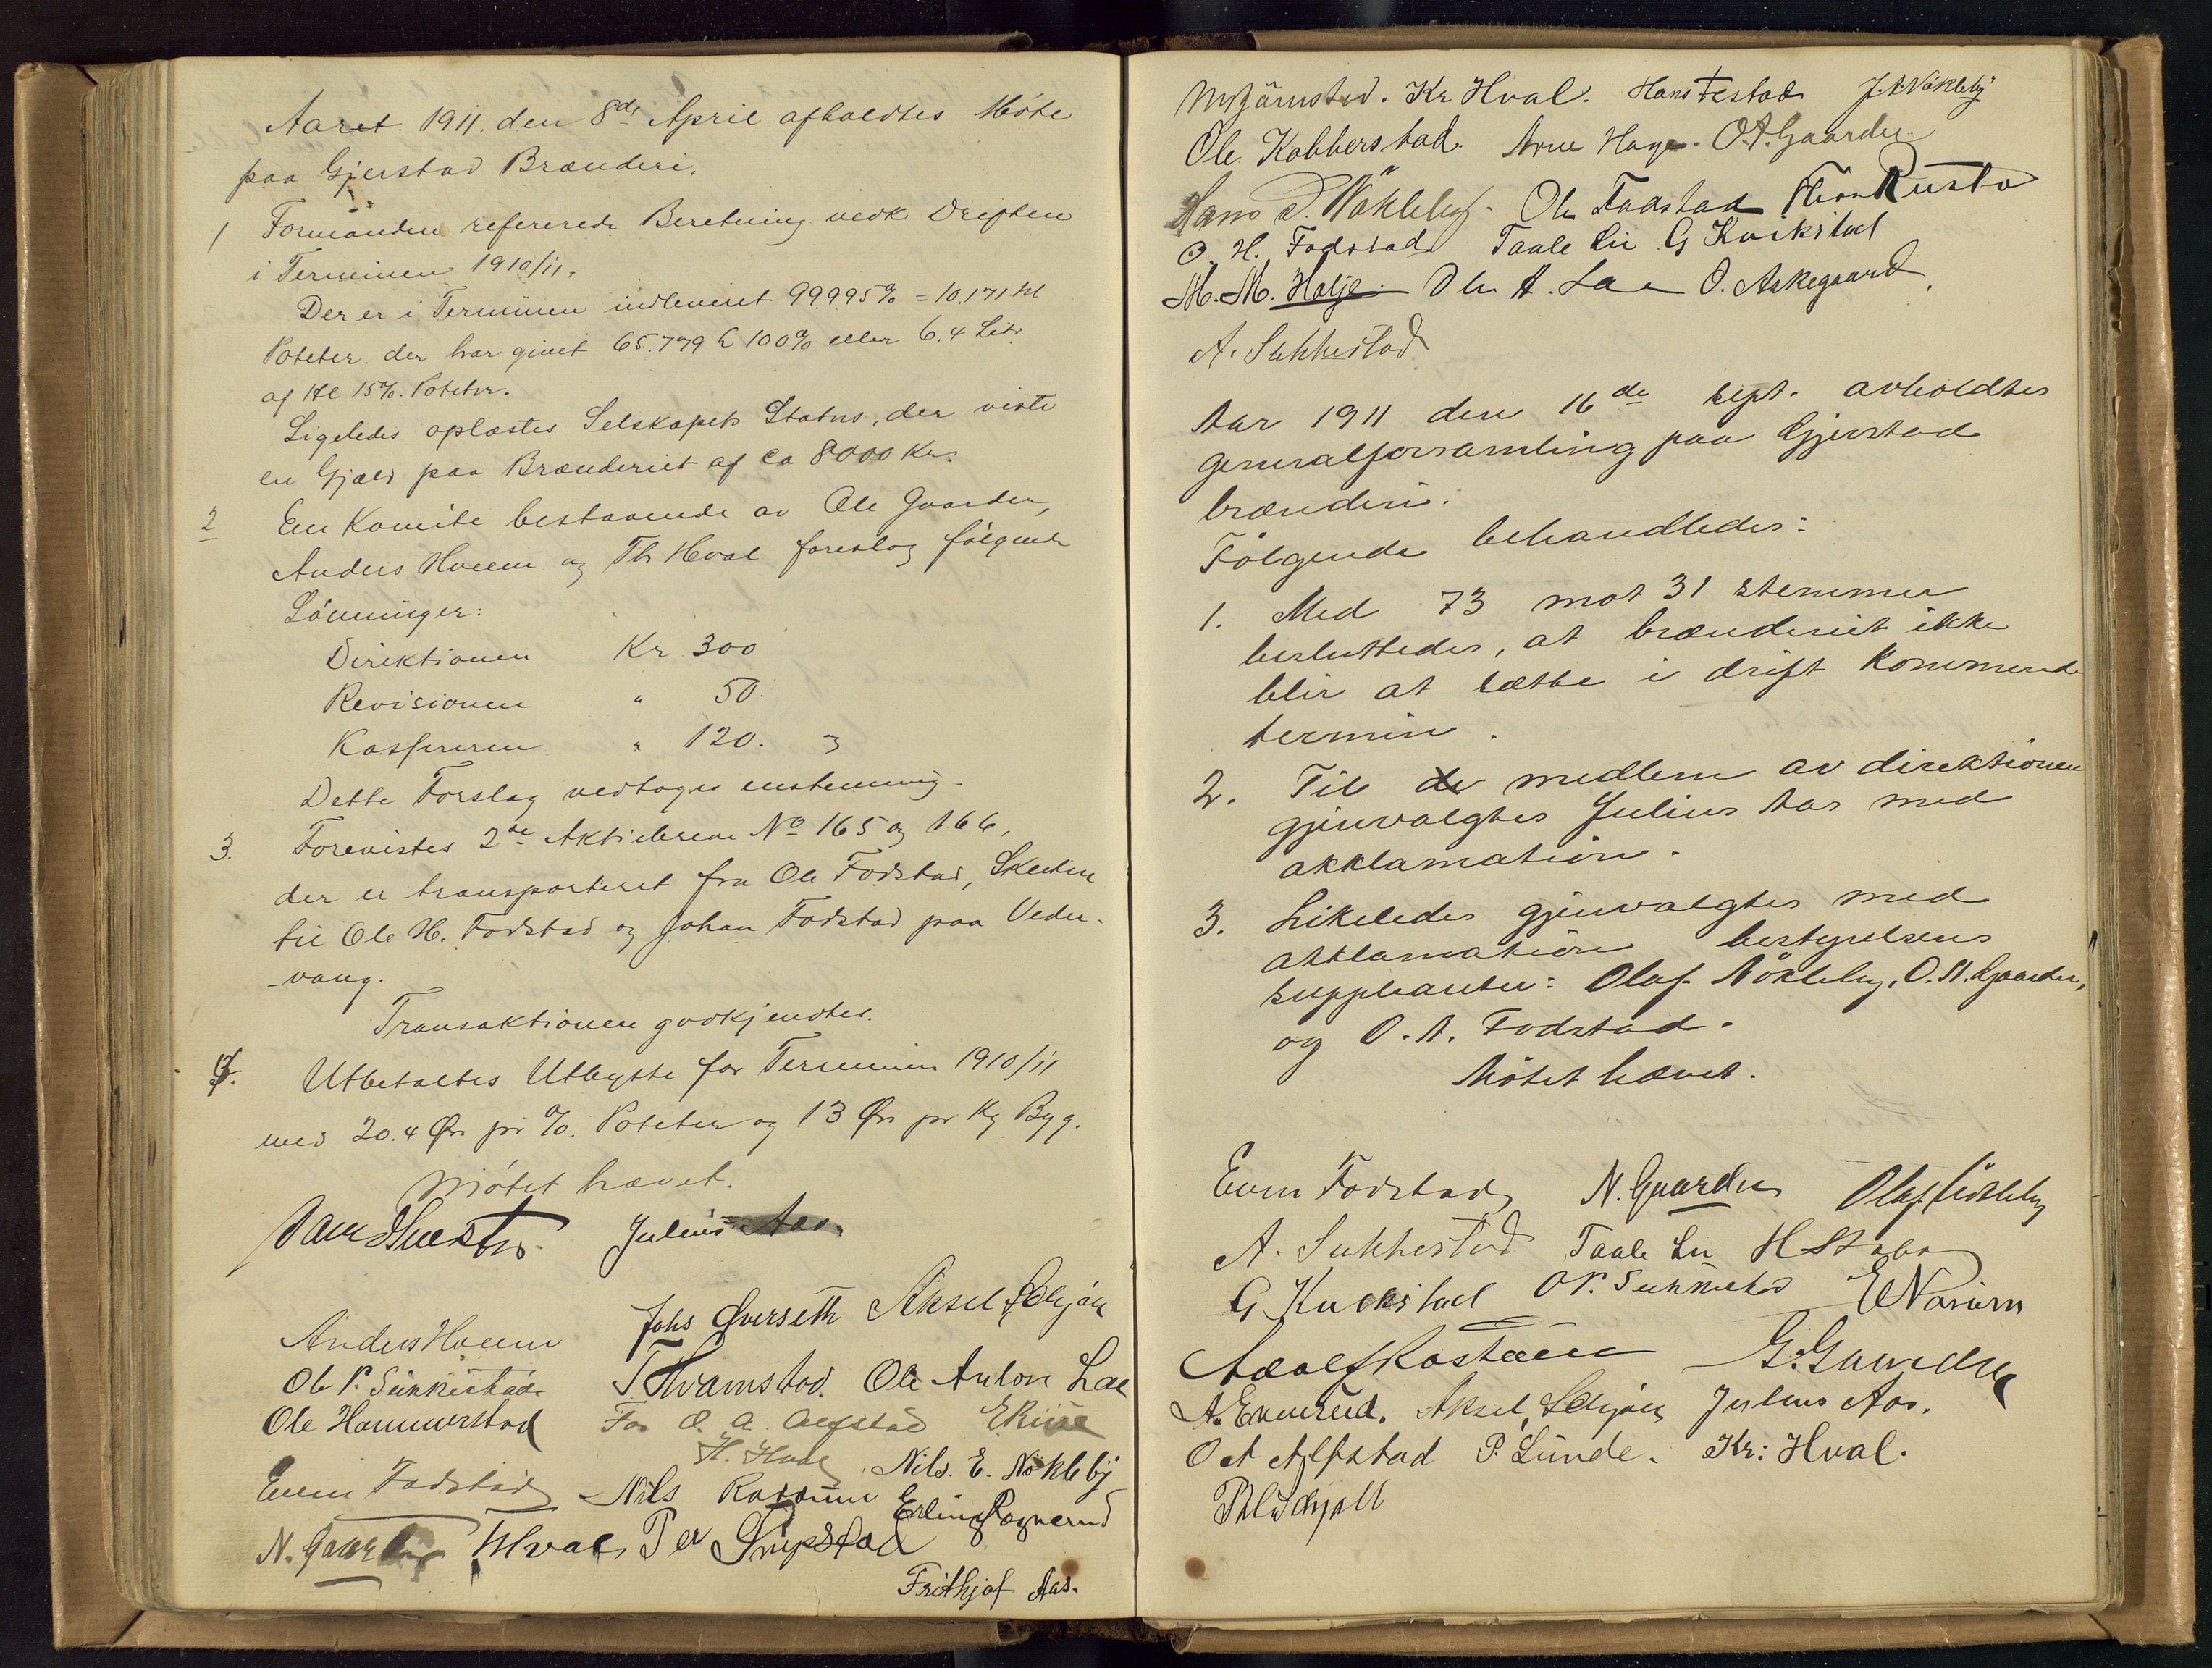 Aaret 1911. den 8de April afholdtes Möte
paa Gjerstad Brænderi.
1 Formanden refererede Beretning vedk Driften
i Terminen 1910/11.
Der er i Terminen indleveret 99995% = 10.171 hl
Poteter der har givet 65.779 L 100% eller 6.4 Liter
af Hl 15%. Poteter.
Ligeledes oplæstes Selskapets Status, der viste
en Gjæld paa Brænderiet af ca 8000 Kr.
2 En Komite bestaaende av Ole Gaarder,
Anders Hveem og Th Hval foreslog fölgende
Lönninger:
Direktionen Kr 300
Revisionen " 50.
Kassereren " 120. "
Dette Forslag vedtoges enstemmig.
3. Forevistes 2de Aktiebreve No 165 og 166,
der er transporteret fra Ole Fodstad, Skeden
til Ole H. Fodstad og Johan Fodstad paa Veder-
-vang.
Transaktionen godkjendtes.
Utbetaltes Utbytte for Terminen 1910/11
med 20.4 Øre pr %. Poteter og 13 Øre pr Kg Byg.
Mötet hævet.
Julius Aas.
Johs Øverseth Aksel
Anders Hveem
Ole P. Sukkestad T. Hvamstad. Ole Anton Lae
Ole Hammerstad For O. A. Alfstad E Riise
H. Hval Nils. E. Nökleby
Even Fodstad Nils Erling Rognerud
N. Gaarder THval Per
Frithjof Aas.
Kr Hval. Hans Festad J. A. Nökleby
Ole Kobberstad. Arne Hage. O. A. Gaarder
Hans P. Nökleby. Ole Fodstad Rustad
O. H. Fodstad Taale Lie G Kvikstad
M. M. Hölje. Ole A. Lae O. Askegaard.
A. Sukkestad
Aar 1911 den 16de sept. avholdtes
generalforsamling paa Gjerstad
brænderi.
Fölgende behandledes:
1. Med 73 mot 31 stemmer
besluttedes, at brænderiet ikke
blir at sætte i drift kommende
termin.
2. Til medlem av direktionen
gjenvalgtes Julius Aas med
akklamation.
3. Likeledes gjenvalgtes med
akklamation bestyrelsens
suppleanter: Olaf Nökleby, O. A. Gaarder,
og O. A. Fodstad.
Mötet hævet.
Even Fodstad N. Gaarder Olaf Nökleby
A. Sukkestad Taale Lie H Staba
G Kvikstad O P. Sukkestad
G. Gaarder
A. Evenrud. Aksel Julius Aas.
O A Alfstad P. Lunde. Kr: Hval.